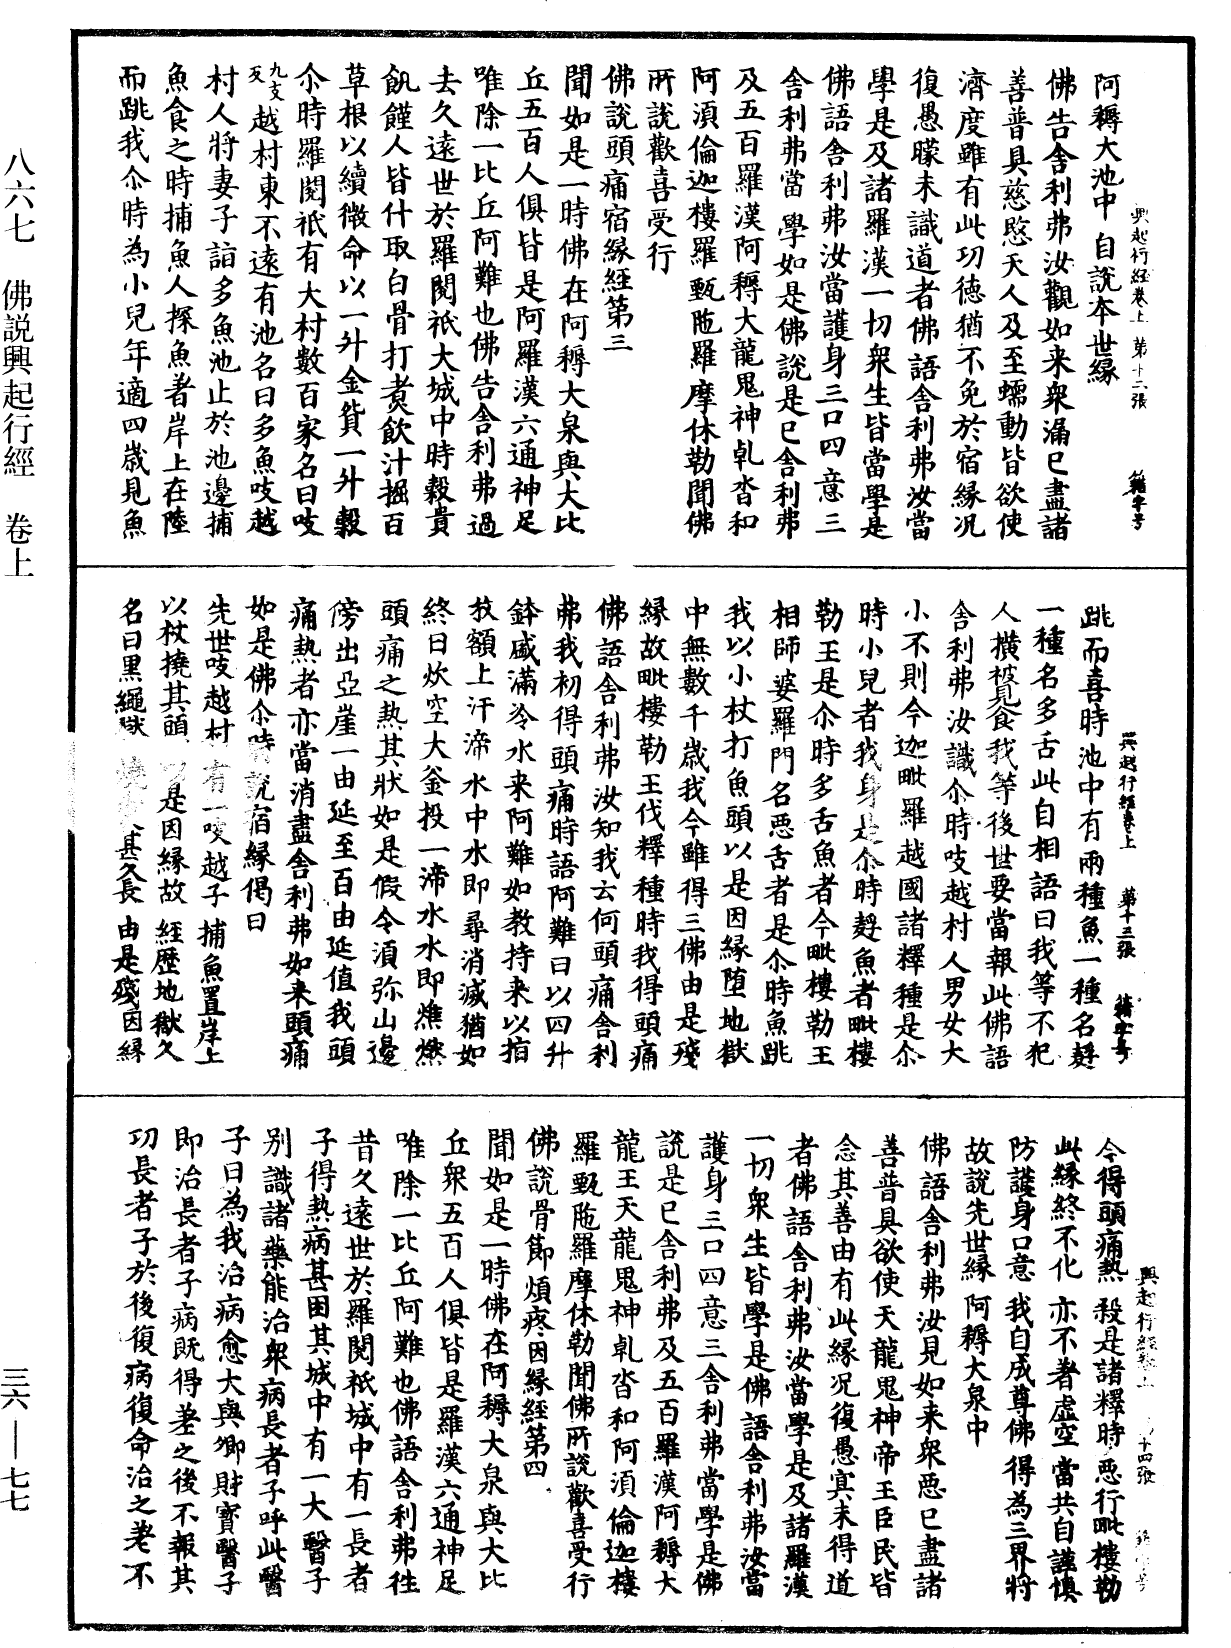 八六七　佛説興起行經　卷上
三六——七七
興起行經卷上　第十二張　籍字号
阿耨大池中　自說本世緣
佛告舍利弗汝觀如来衆漏已盡諸
善普具慈愍天人及至蠕動皆欲使
濟度雖有此功德猶不免於宿緣况
復愚矇未識道者佛語舍利弗汝當
學是及諸羅漢一切衆生皆當學是
佛語舍利弗汝當護身三口四意三
舍利弗當學如是佛說是已舍利弗
及五百羅漢阿耨大龍鬼神乹沓和
阿湏倫迦樓羅甄陁羅摩休勒聞佛
所說歡喜受行
佛說頭痛宿緣經第三
聞如是一時佛在阿耨大泉與大比
丘五百人俱皆是阿羅漢六通神足
唯除一比丘阿難也佛告舍利弗過
去久遠世於羅閱祇大城中時穀貴
飢饉人皆什取白骨打煑飲汁掘百
草根以續微命以一升金貨一升穀
尒時羅閱祇有大村數百家名曰吱
九支反越村東不遠有池名曰多魚吱越
村人將妻子詣多魚池止於池邊捕
魚食之時捕魚人採魚著岸上在陸
而跳我尒時為小兒年適四歲見魚
興起行經卷上　第十三張　籍字号
跳而喜時池中有兩種魚一種名麩
一種名多舌此自相語曰我等不犯
人橫被見食我等後世要當報此佛語
舍利弗汝識尒時吱越村人男女大
小不則今迦毗羅越國諸釋種是尒
時小兒者我身是尒時麩魚者毗樓
勒王是尒時多舌魚者今毗樓勒王
相師婆羅門名惡舌者是尒時魚跳
我以小杖打魚頭以是因緣墮地獄
中無數千歲我今雖得三佛由是殘
緣故毗樓勒王伐釋種時我得頭痛
佛語舍利弗汝知我云何頭痛舍利
弗我初得頭痛時語阿難曰以四升
鉢盛滿冷水来阿難如教持来以指
抆額上汗渧水中水即尋消滅猶如
終日炊空大釜投一渧水水即燋燃
頭痛之熱其狀如是假令須弥山邊
傍出亞崖一由延至百由延值我頭
痛熱者亦當消盡舍利弗如来頭痛
如是佛尒時說宿緣偈曰
先世吱越村　有一吱越子　捕魚置岸上
以杖撓其頭　以是因緣故　經歷地獄久
名曰黑繩獄　燒　甚久長　由是殘因緣
興起行經卷上　十四張
今得頭痛熱　殺是諸釋時　惡行毗樓勒
此緣終不化　亦不著虛空　當共自謹慎
防護身口意　我自成尊佛　得為三界將
故說先世緣　阿耨大泉中
佛語舍利弗汝見如来衆惡已盡諸
善普具欲使天龍鬼神帝王臣民皆
念其善由有此緣况復愚冥未得道
者佛語舍利弗汝當學是及諸羅漢
一切衆生皆學是佛語舍利弗汝當
護身三口四意三舍利弗當學是佛
說是已舍利弗及五百羅漢阿耨大
龍王天龍鬼神乹沓和阿須倫迦樓
羅甄陁羅摩休勒聞佛所說歡喜受行
佛說骨節煩疼因緣經第四
聞如是一時佛在阿耨大泉與大比
丘衆五百人俱皆是羅漢六通神足
唯除一比丘阿難也佛語舍利弗往
昔久遠世於羅閱祇城中有一長者
子得熱病甚困其城中有一大醫子
別識諸藥能治衆病長者子呼此醫
子曰為我治病愈大與卿財寶醫子
即治長者子病既得差之後不報其
功長者子於後復病復命治之差不